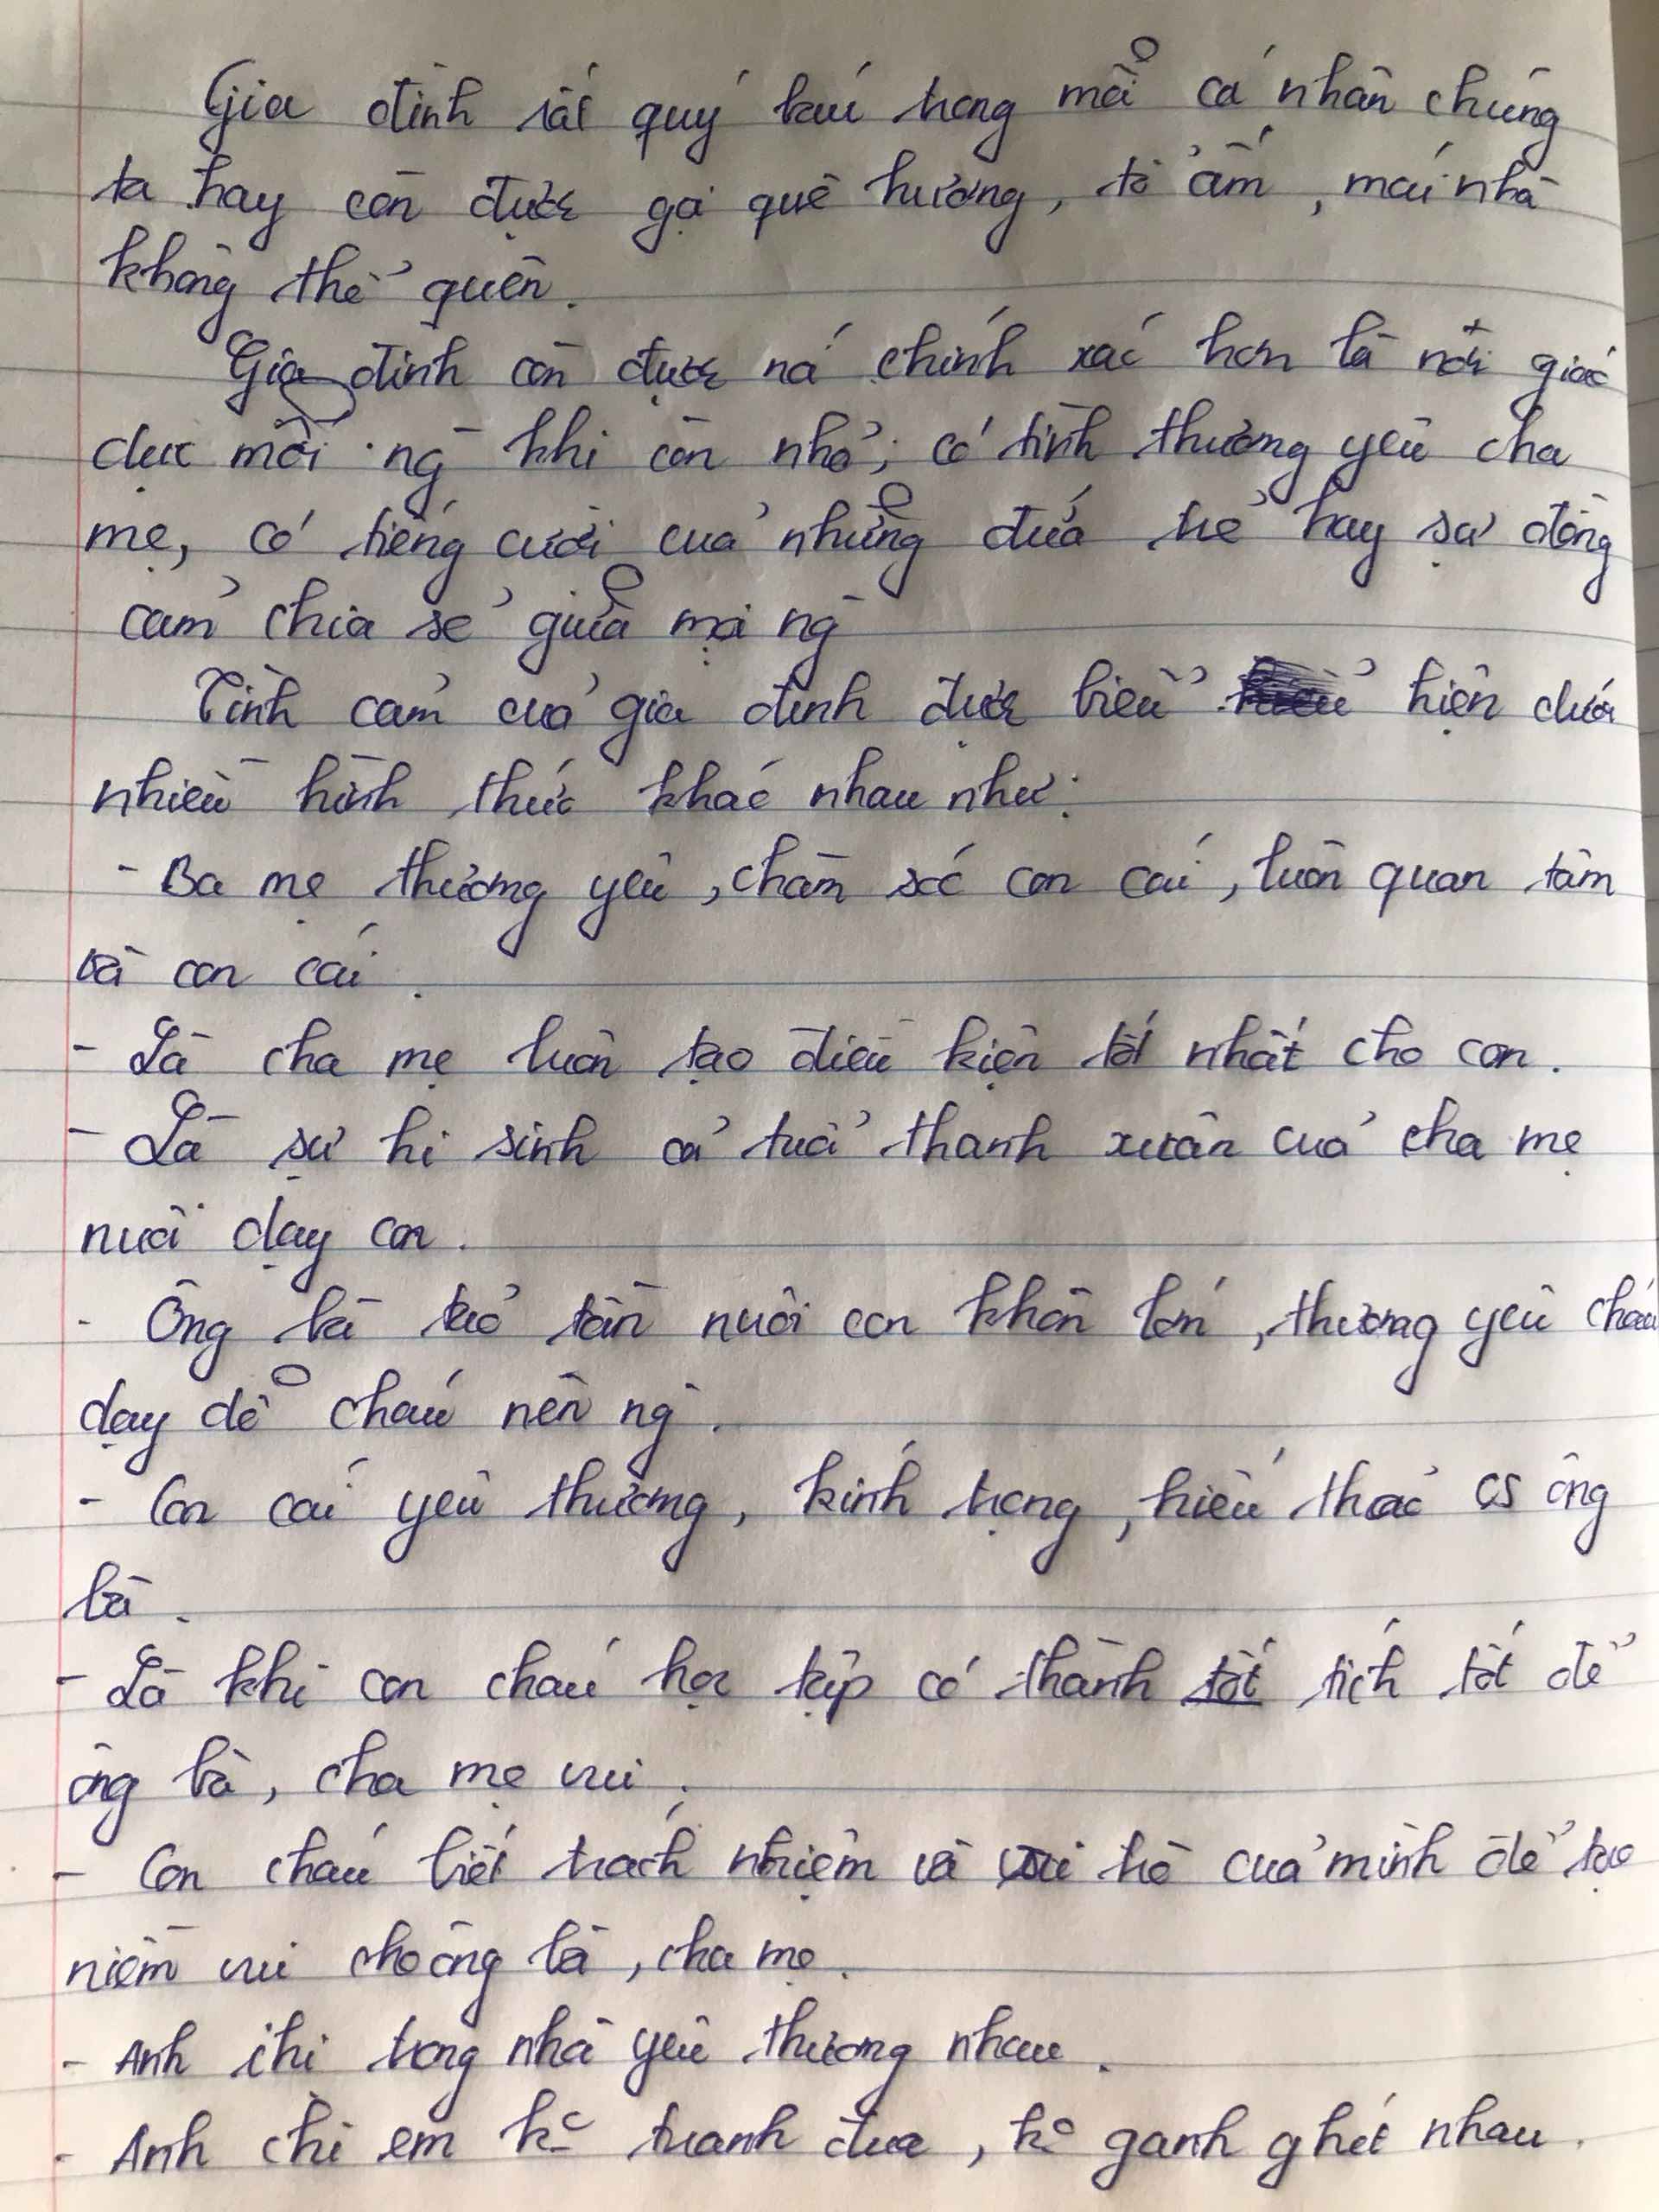 Gia đình rất quý báu trong mỗi cá nhân chúng
ta hay còn được gọi quê hương, tổ ấm, mái nhà
không thể quên.
Gia đình còn được nói chính xác hơn là nơi giáo
dục mỗi ng` khi còn nhỏ; có tình thương yêu cha
mẹ, có tiếng cười của những đứa trẻ hay sự đồng
cảm chia sẻ giữa mọi ng`
Tình cảm của gia đình được biểu hiện dưới
nhiều hình thức khác nhau như:
- Ba mẹ thương yêu, chăm sóc con cái, luôn quan tâm
và con cái.
- Là cha mẹ luôn tạo điều kiện tốt nhất cho con.
- Là sự hi sinh cả tuổi thanh xuân của cha mẹ
nuôi dạy con.
- Ông bà tảo tần nuôi con khôn lớn, thương yêu cháu
dạy dỗ cháu nên ng`.
- Con cái yêu thương, kính trọng, hiếu thảo cs ông
bà.
- Là khi con cháu học tập có thành tốt tích tốt để
ông bà, cha mẹ vui.
- Con cháu biết trách nhiệm và vai trò của mình để tạo
niềm vui cho ông bà, cha mẹ.
- Anh chi trong nhà yêu thương nhau.
- Anh chi em k° tranh đua, k° ganh ghét nhau.